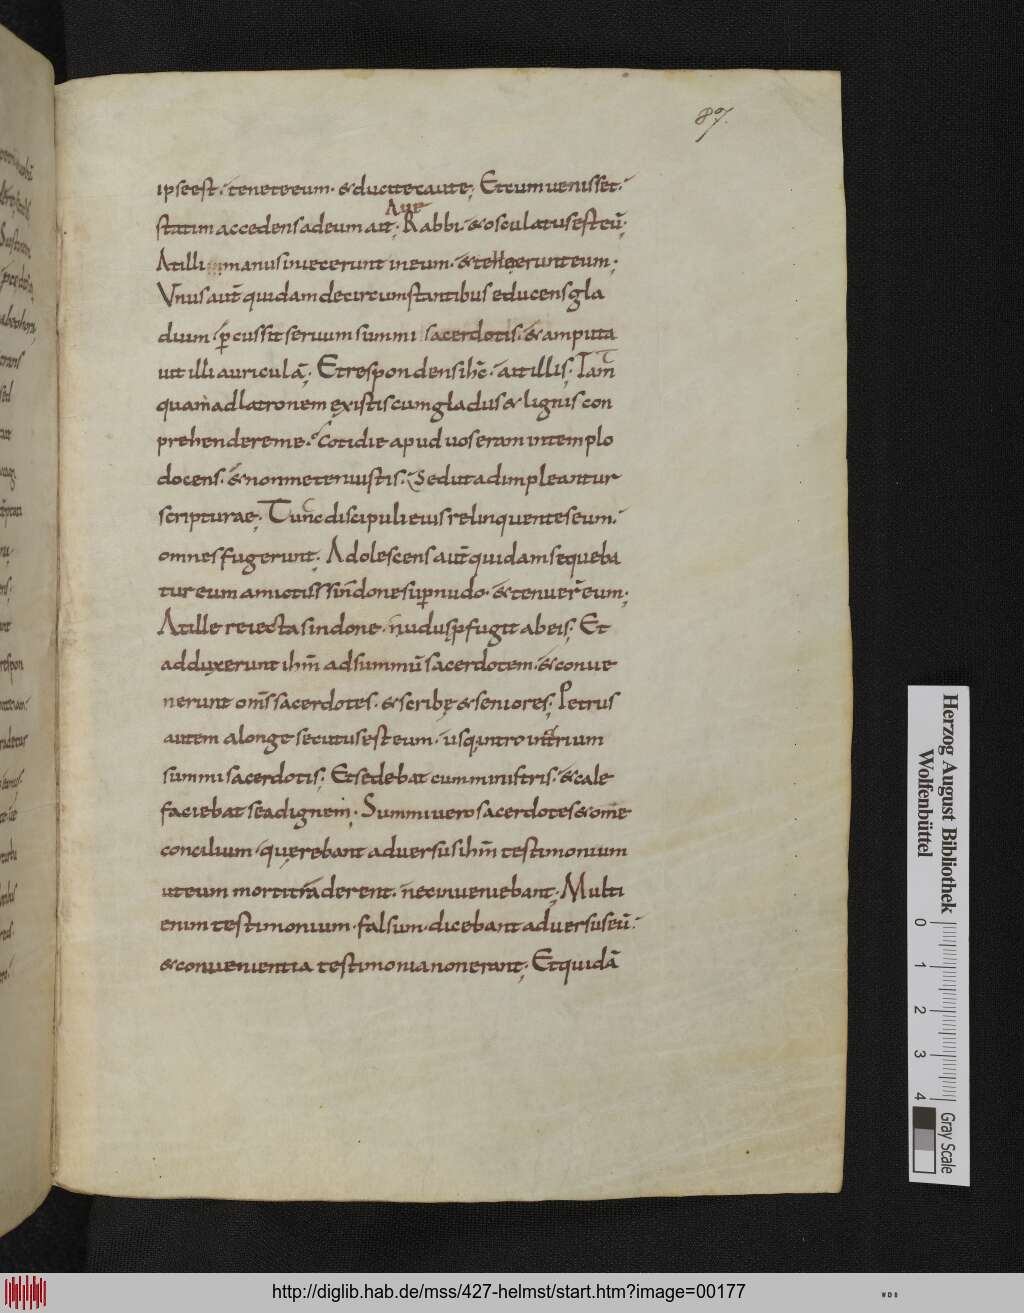 87.
ipse est. tenete eum. & ducite caute; Et cum venisset.
Ave
statim accedens ad eum ait; Rabbi. & osculatus est eū;
At illi manus iniecerunt in eum. & tenuerunt eum;
Vnus aut̄ quidam de circumstantibus educens gla
dium. p̱cussit seruum summi sacerdotis. & amputa
uit illi auriculā; Et respondens ih̄c. ait illis; Tam̄
quam ad latronem existis cum gladiis & lignis con
prehendere me. Cotidie apud uos eram in templo
docens. & non me tenuistis. Sed ut adimpleantur
scripturae; Tunc discipuli eius relinquentes eum.
omnes fugerunt; Adolescens aut̄ quidam sequeba
tur eum amictus sindone sup̱ nudo. & tenuer̄ eum;
At ille reiecta sindone. nudus p̱fugit ab eis; Et
adduxerunt ih̄m ad summū sacerdotem. & conue
nerunt om̄s sacerdotes. & scribę & seniores; Petrus
autem a longe secutus est eum. usq; intro in atrium
summi sacerdotis; Et sedebat cum ministris. & cale
faciebat se ad ignem; Summi vero sacerdotes & om̄e
concilium. quęrebant aduersus ih̄m testimonium
ut eum morti traderent. nec inueniebant; Multi
enim testimonium. falsum. dicebant aduersus eū.
& conuenientia testimonia non erant; Et quidā
Herzog August Bibliothek
Wolfenbüttel
0 1 2 3 4
Gray Scale
http://diglib.hab.de/mss/427-helmst/start.htm?image=00177